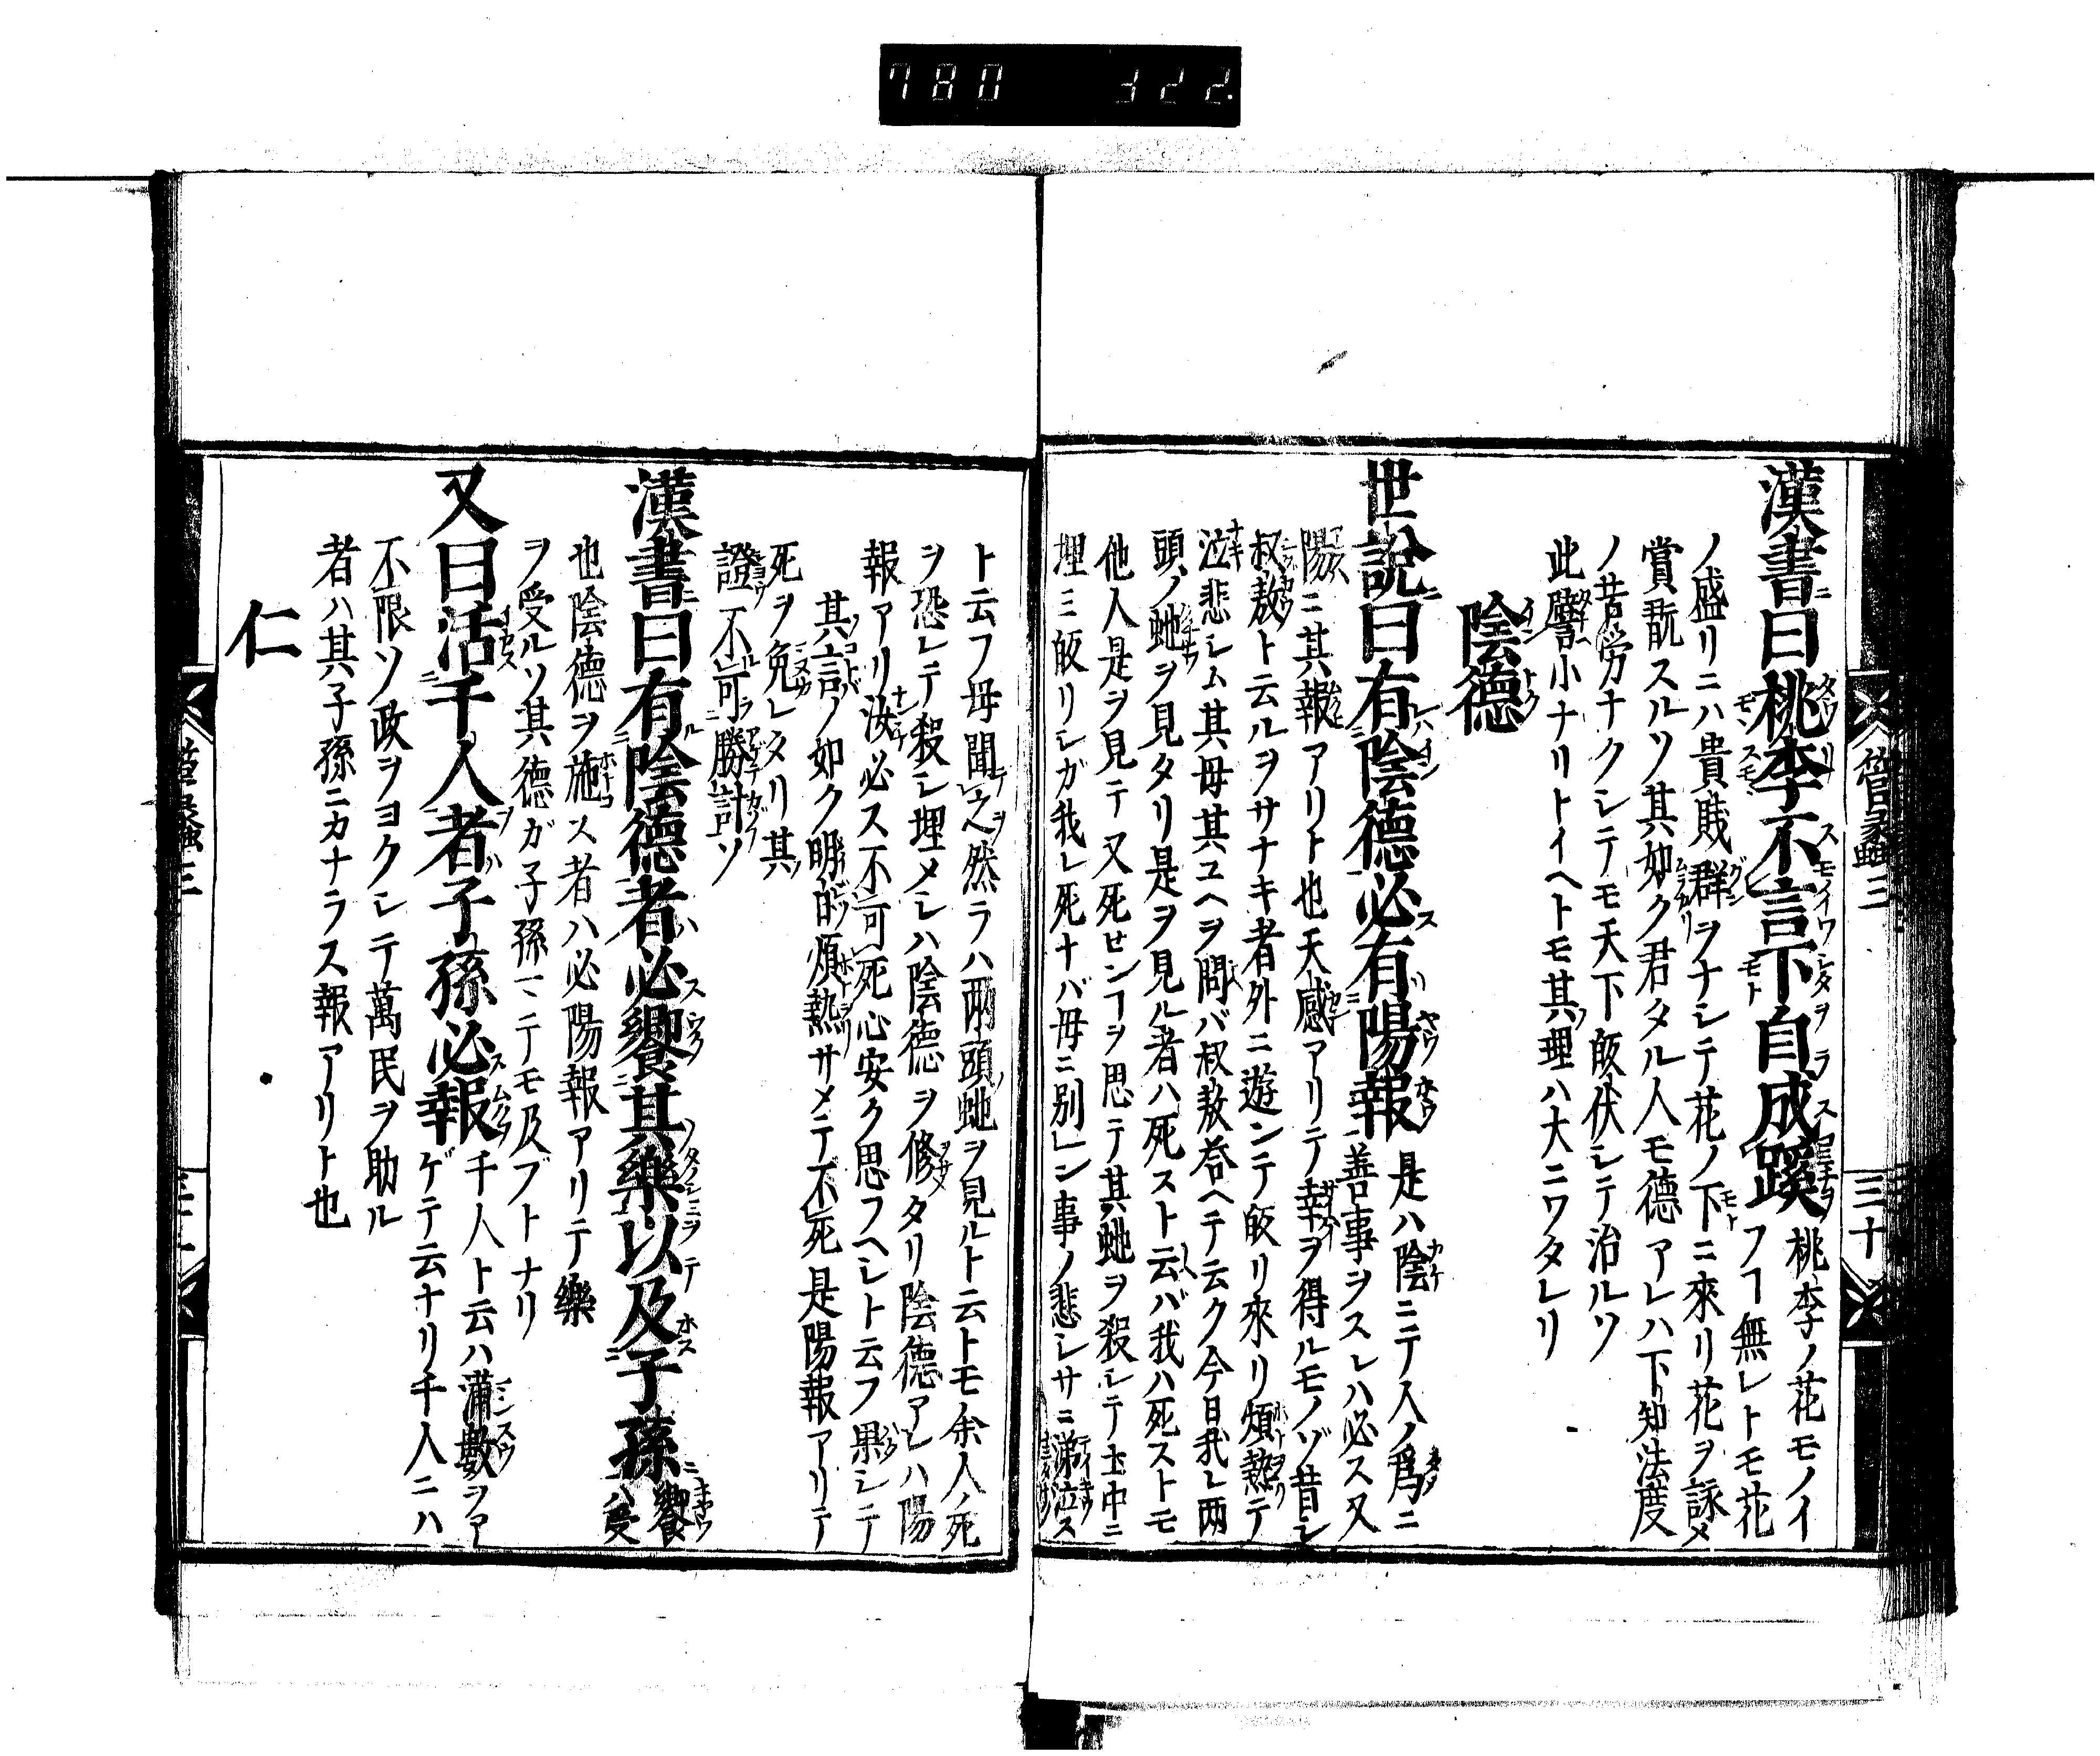 780 322
管蠡三
三十
漢書曰桃李不言下自成蹊 桃李ノ花モノイ
フヿ無レトモ花
ノ盛リニハ貴賎群ヲナシテ花ノ下ニ來リ花ヲ詠メ
賞翫スルソ其如ク君タル人モ德アレハ下知法度
ノ苦労ナクシテモ天下皈伏シテ治ルソ
此譬小ナリトイヘトモ其理ハ大ニワタレリ
陰德
世說曰有陰德必有陽報 是ハ陰ニテ人ノ爲ニ
善事ヲスレハ必ス又
陽ニ其報アリト也天感アリテ幸ヲ得ルモノゾ昔シ
叔敖ト云ルヲサナキ者外ニ遊ンテ皈リ來リ煩熱テ
泣悲シム其母其ユヘヲ問バ叔敖荅ヘテ云ク今日我レ両
頭ノ虵ヲ見タリ是ヲ見ル者ハ死スト云バ我ハ死ストモ
他人是ヲ見テ又死センヿヲ思テ其虵ヲ殺シテ土中ニ
埋ミ皈リシガ我レ死ナバ母ニ別レン事ノ悲シサニ涕泣ス
ト云フ母聞之然ラハ両頭虵ヲ見ルト云トモ余人ノ死
ヲ恐レテ殺シ埋メシハ陰德ヲ修タリ陰德アレハ陽
報アリ汝必ス不可死心安ク思フヘシト云フ果シテ
其言ノ如ク明的煩熱サメテ不死是陽報アリテ
死ヲ免レタリ其
證不可勝計ソ
漢書曰有陰德者必饗其樂以及子孫 饗
ハ受
也陰德ヲ施ス者ハ必陽報アリテ樂
ヲ受ルソ其德ガ子孫ニテモ及ブトナリ
又曰活千人者子孫必報 千人ト云ハ滿數ヲア
ゲテ云ナリ千人ニハ
不限ソ政ヲヨクシテ萬民ヲ助ル
者ハ其子孫ニカナラス報アリト也
仁